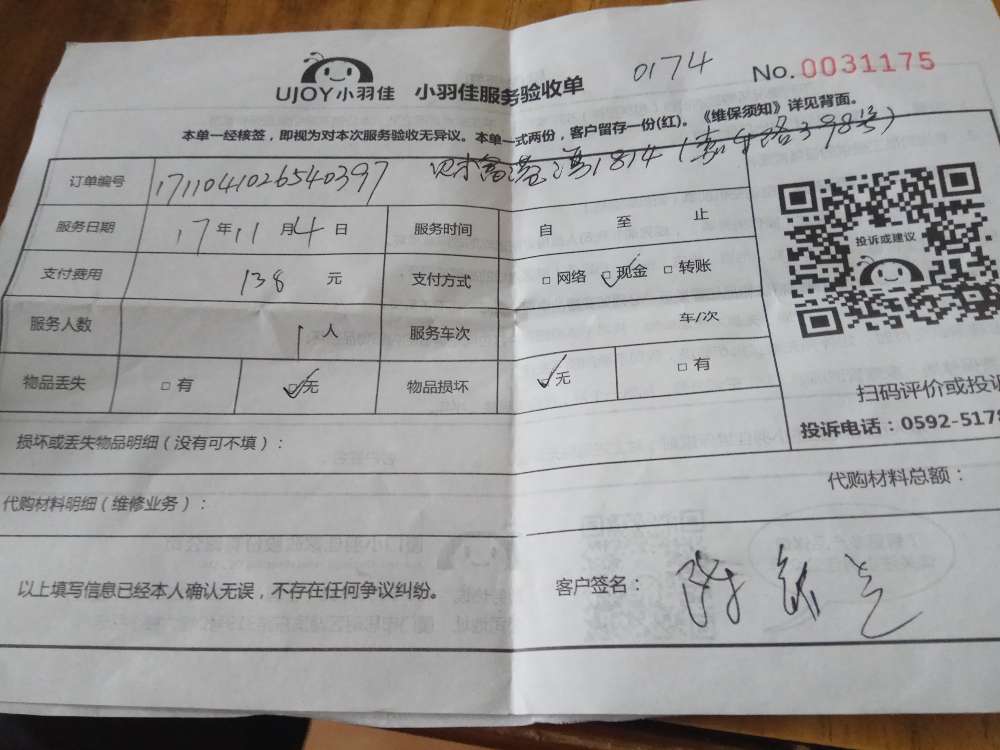 UJOY小羽佳 小羽佳服务验收单 0174 No.0031175
本单一经核签，即视为对本次服务验收无异议。本单一式两份，客户留存一份(红)。《维保须知》详见背面。
订单编号 1711041026540397 财富港湾1814（嘉禾路398号）
服务日期 17年11月4日 服务时间 自 至 止
支付费用 138 元 支付方式 □网络 ☑现金 □转账
投诉或建议
服务人数 1人 服务车次 车/次
物品丢失 □有 ☑无 物品损坏 ☑无 □有
扫码评价或投诉
损坏或丢失物品明细（没有可不填）：
投诉电话：0592-5178
代购材料明细（维修业务）： 代购材料总额：
以上填写信息已经本人确认无误，不存在任何争议纠纷。 客户签名：